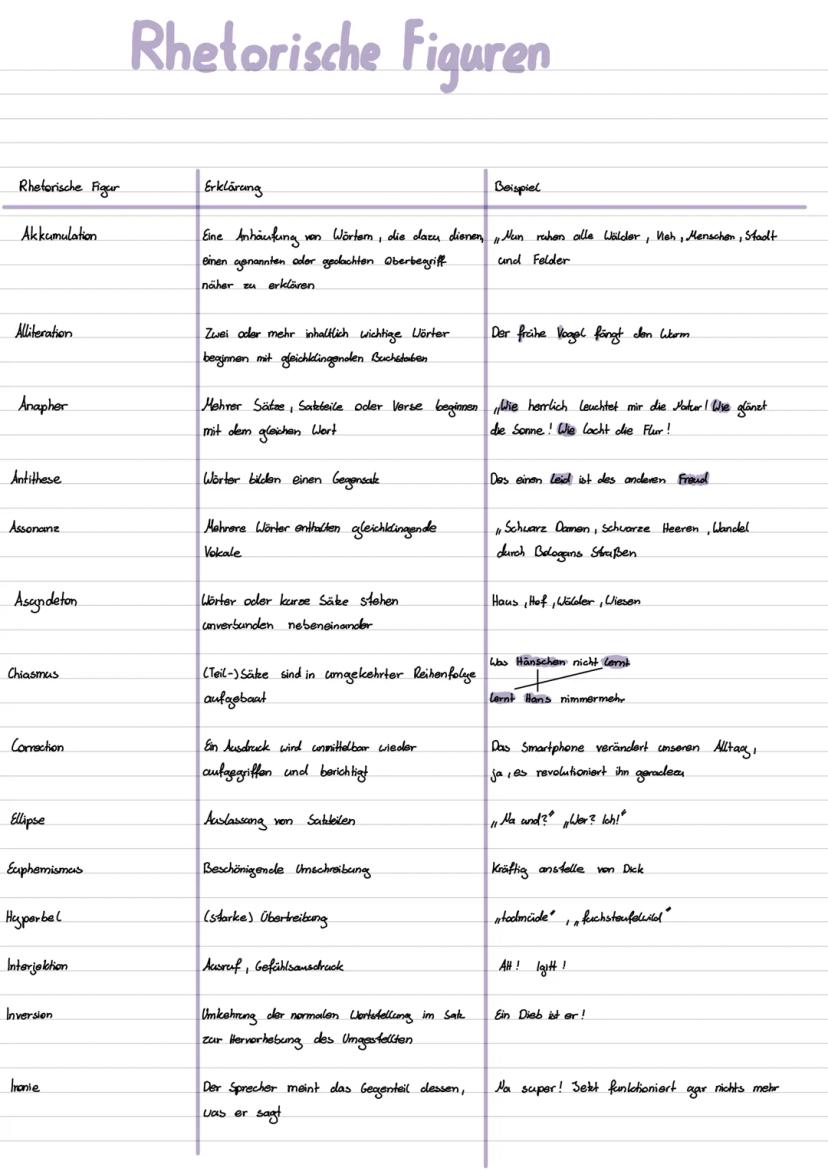 Rhetorische Figuren
Rhetorische Figur Erklärung Beispiel
Akkumulation Eine Anhäufung von Wörtern, die dazu dienen, „Nun ruhen alle Wälder, Vieh, Menschen, Stadt
einen genannten oder gedachten Oberbegriff und Felder
näher zu erklären
Alliteration Zwei oder mehr inhaltlich wichtige Wörter Der frühe Vogel fängt den Wurm
beginnen mit gleichklingenden Buchstaben
Anapher Mehrer Sätze, Satzteile oder Verse beginnen „Wie herrlich leuchtet mir die Natur! Wie glänzt
mit dem gleichen Wort die Sonne! Wie lacht die Flur!
Antithese Wörter bilden einen Gegensatz Des einen Leid ist des anderen Freud
Assonanz Mehrere Wörter enthalten gleichklingende „Schwarz Damen, Schwarze Heeren, Wandel
Vokale durch Bologans Straßen
Asyndeton Wörter oder kurze Sätze stehen Haus, Hof, Wälder, Wiesen
unverbunden nebeneinander
Was Hänschen nicht lernt
Chiasmus (Teil-)Sätze sind in umgekehrter Reihenfolge
aufgebaut lernt Hans nimmermehr
Correction Ein Ausdruck wird unmittelbar wieder Das Smartphone verändert unseren Alltag,
aufgegriffen und berichtigt ja, es revolutioniert ihn geradezu
Ellipse Auslassung von Satzteilen „Na und?" „Wer? Ich!"
Euphemismus Beschönigende Umschreibung Kräftig anstelle von Dick
Hyperbel (starke) Übertreibung „todmüde", „fuchsteufelwild"
Interjektion Ausruf, Gefühlsausdruck Ah! Igitt!
Inversion Umkehrung der normalen Wortstellung im Satz Ein Dieb ist er!
zur Hervorhebung des Umgestellten
Ironie Der Sprecher meint das Gegenteil dessen, Na super! Jetzt funktioniert gar nichts mehr
was er sagt